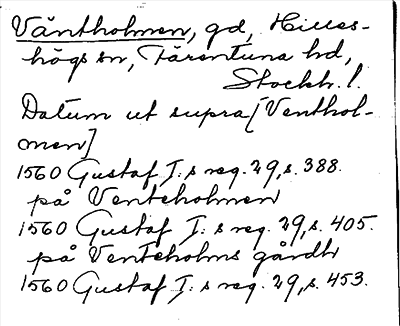 Väntholmen, gd, Hilles-
högs sn, Färentuna hd,
Stockh. l.
Datum ut supra [Venthol-
men]
1560 Gustaf I:s reg. 29, s. 388.
på Venteholmen
1560 Gustaf I:s reg. 29, s. 405.
på Venteholms gårdh
1560 Gustaf I:s reg. 29, s. 453.